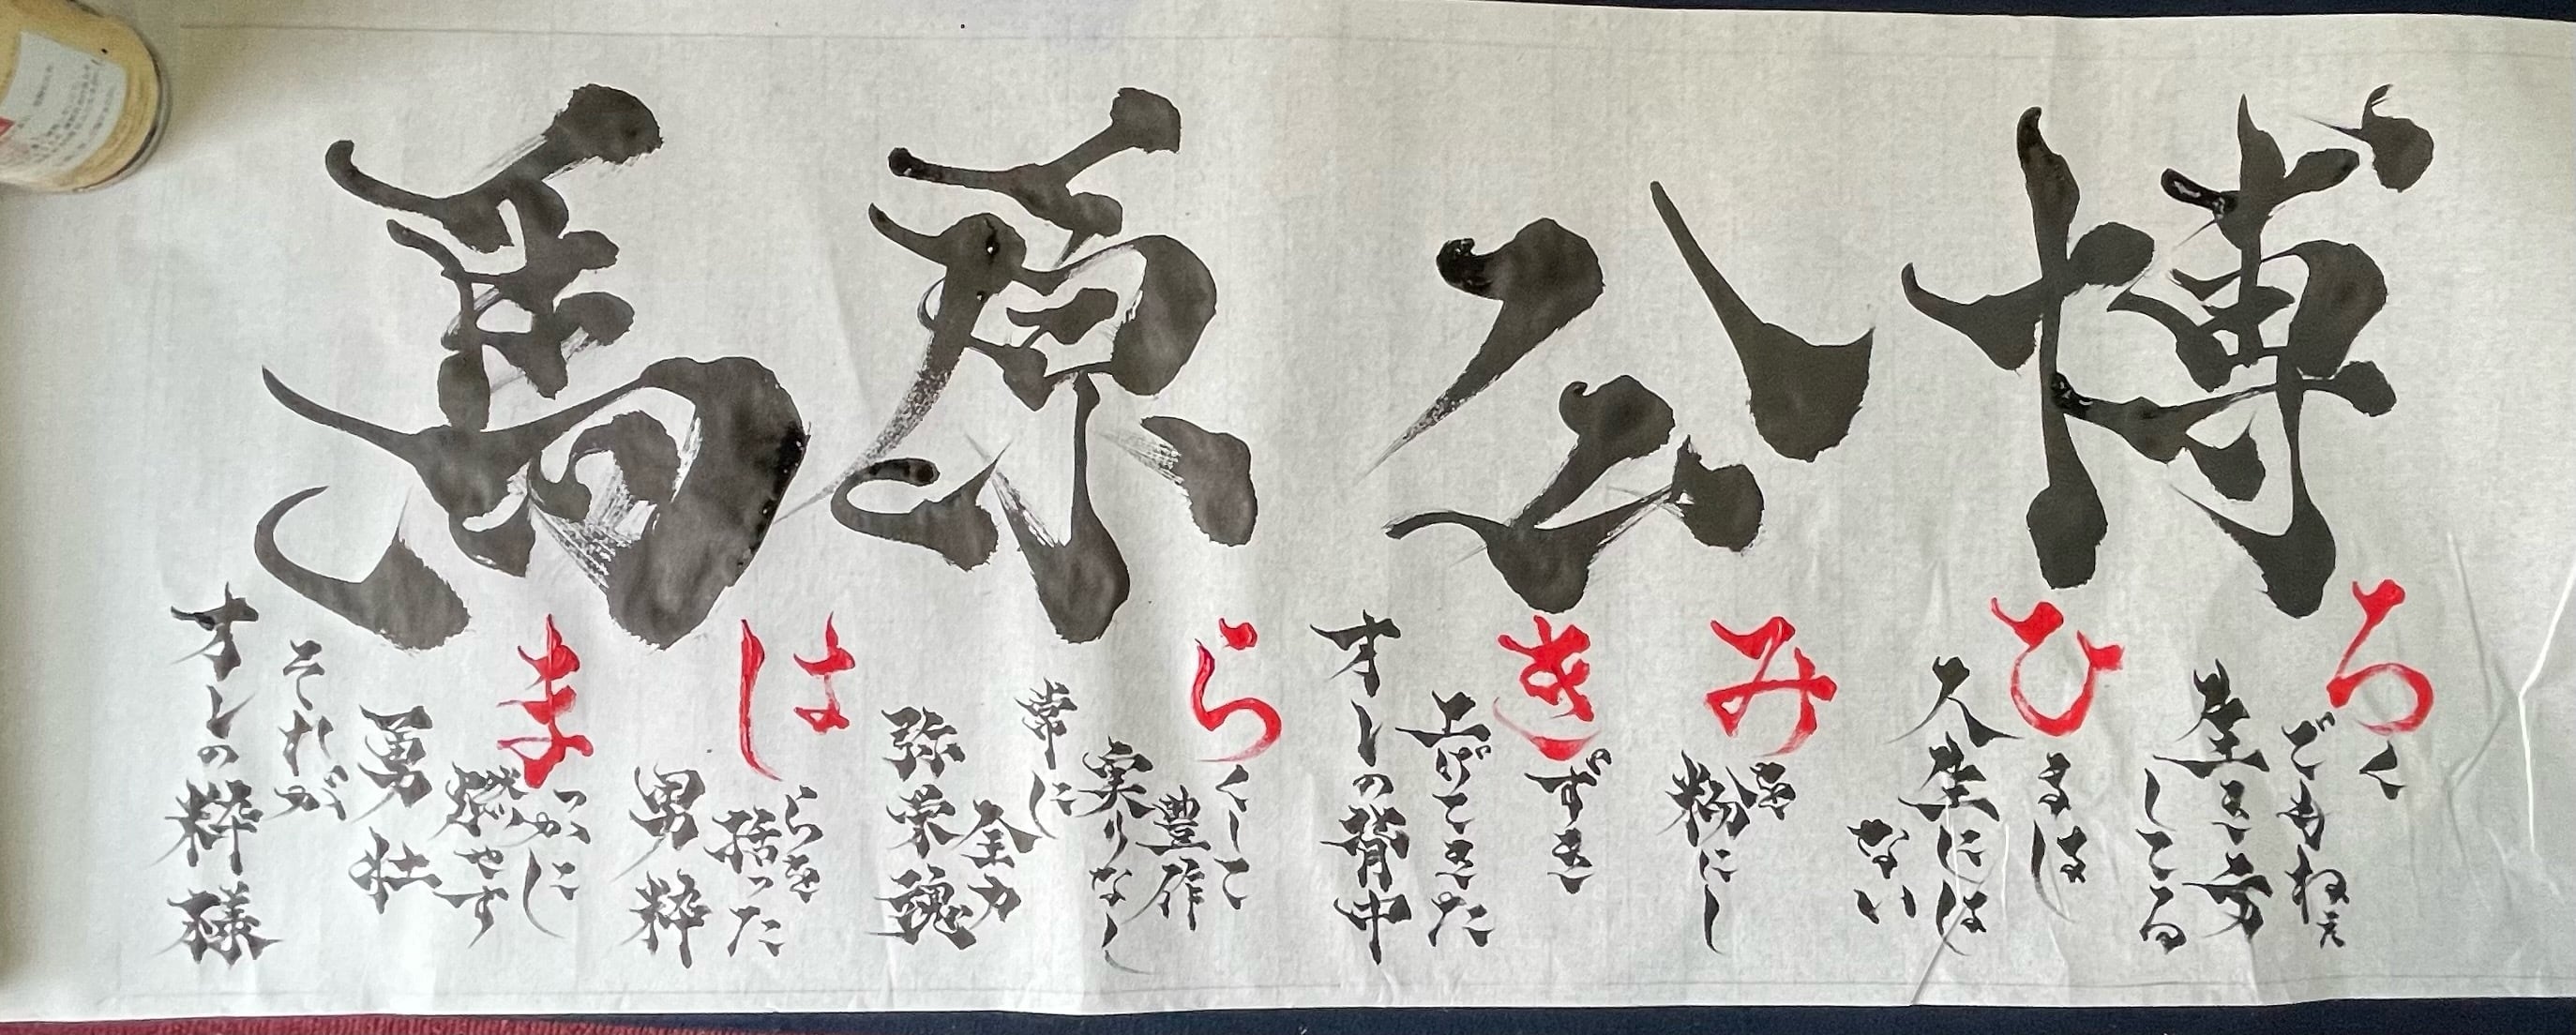 博公原馬
ろく
でもねぇ
生き方
してる
ひまは
人生には
ない
みを
粉にし
きずき
上げてきた
オレの背中
らくして
豊作
実りなし
常に
全力
弥栄魂
はらを
括った
男粋
まっかにし
燃やす
勇壮
それが
オレの粋様